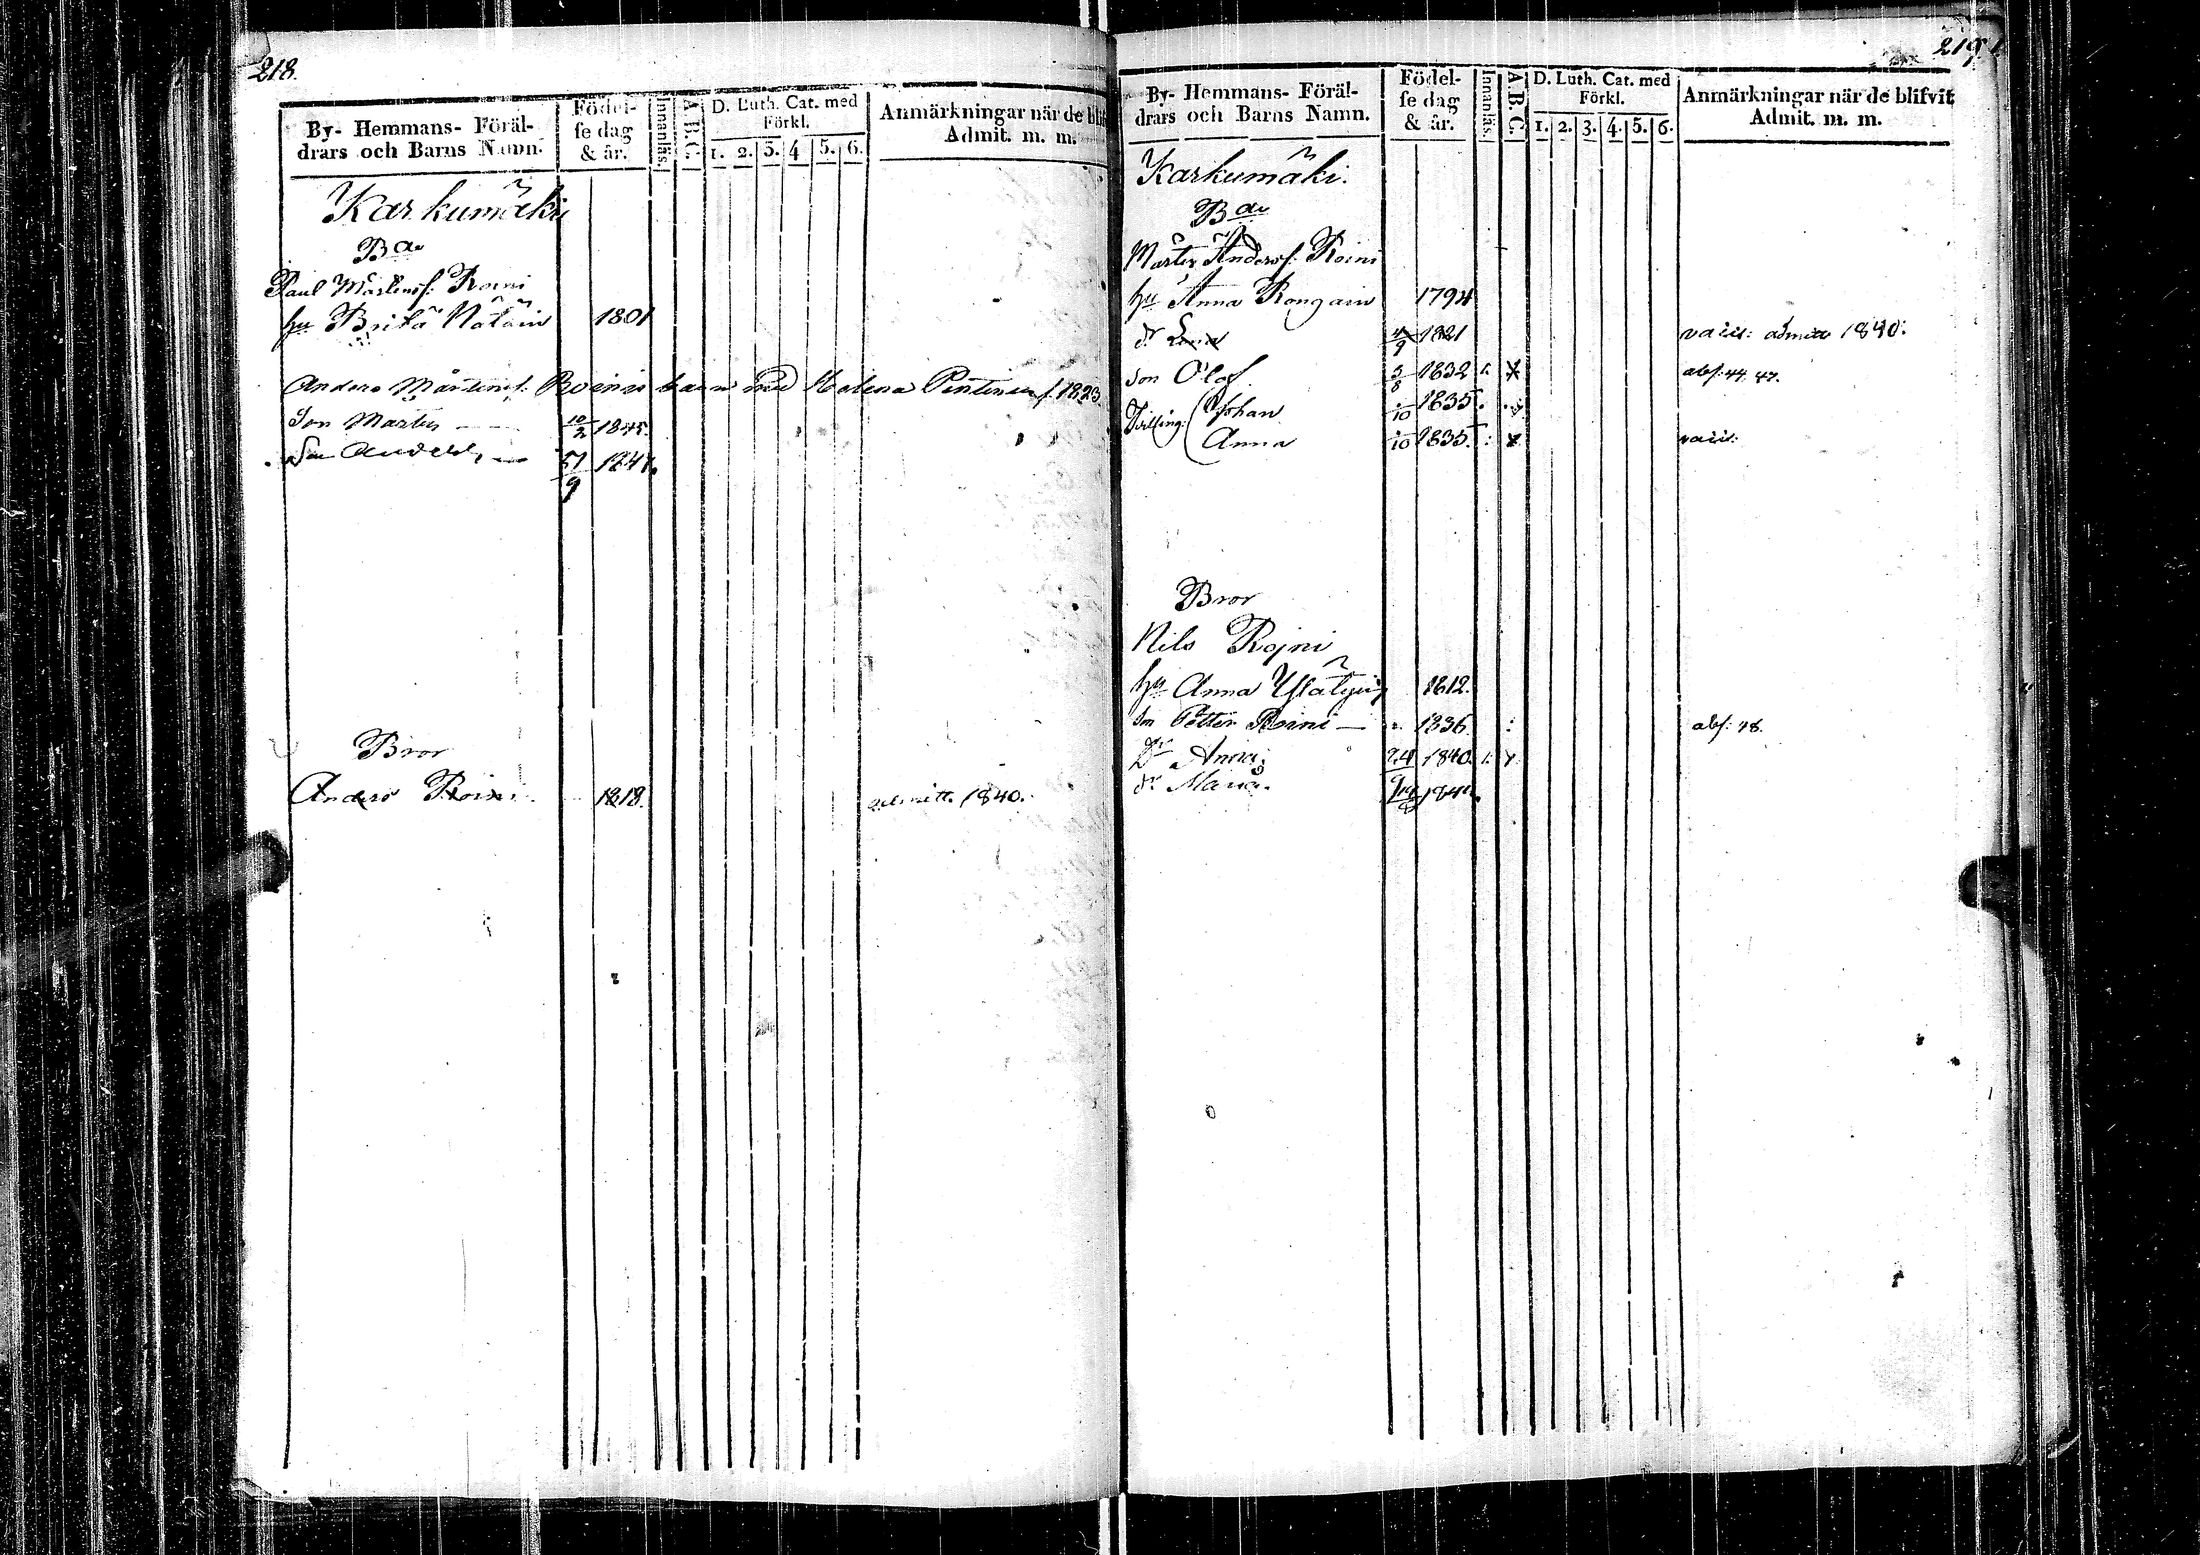 218.
By- Hemmans- Föräl-
drars och Barns Namn.
Födel-
se dag
& år.
Innanläs.
A. B. C.
D. Luth. Cat. med
Förkl.
1. 2. 3. 4 5. 6.
Anmärkningar när de blif
Admit. m. m.
Karkumäki
Bar
Paul Mårtenss: Roini
hu Brita 1801
Anders Mårtenss: Roinis barn med Helena Pentinen f. 1823
Son Mårten 10/2 1845.
Son Anders 1847.
Bror
Anders Roini 1818. admitt. 1840.
219.
By- Hemmans- Föräl-
drars och Barns Namn.
Födel-
se dag
& år.
Innanläs.
A. B. C.
D. Luth. Cat. med
Förkl.
1. 2. 3. 4. 5. 6.
Anmärkningar när de blifvit
Admit. m. m.
Karkumäki.
Bar
Mårten Anderss: Roini
hu Anna Rongain 1794
dr 4/9 1821 admitt 1840.
son Olof. 5/8 1832 abs: 44, 47.
Tvilling: Johan /10 1835.
Anna /10 1835. vacc:
Bror
Nils Rojni
hu Anna 1812.
Son Petter Roini — 1836 abs: 48.
Dr Anna. 1840.
dr Maria.